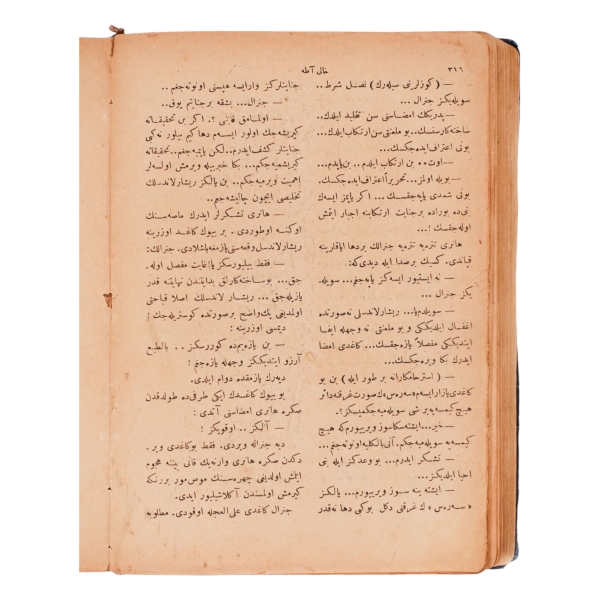 ٣١٦
خالی آطه
— ( کوزلرنی سیله‌رك ) نصل شرط ..
سویله‌یکز جنرال ...
— پدریکك امضاسنی سن تقلید ایلدك ..
ساخته‌کارسنك .. بو ملعنتی سن ارتکاب ایلدك ..
بونی اعتراف ایده‌جکسك ...
— اوت .. بن ارتکاب ایلدم .. بن یاپدم ...
— بویله اولمز .. تحریراً اعتراف ایده‌جکسك .
بونی شمدی یاپه‌جقسك ... اکر یاپمز ایسه‌ك
نی‌ده بوراده بر جنایت ارتکابنه اجبار ایتمش
اوله‌جقسك !...
هانری تتره‌یه تتره‌یه جنرالك بردها ایاقلرینه
قپاندی . کسیك بر صدا ایله دیدی‌که :
— نه ایستیور ایسه‌کز یاپه‌جغم ... سویله .
یکز جنرال ...
— سویله‌م‌یا ... ریشارلاندسلی نه صورتده
اغفال ایلدیککی و بو ملعنتی نه وجهله ایفا
ایتدیککی مفصلاً یازه‌جقسك ... کاغدی امضا
ایدرك بکا ویره‌جکسك ...
— ( استرحامکارانه بر طور ایله ) بن بو
کاغدی یازار ایسه‌م «سه‌رەس» ك صورت غرقنه دائر
هیچ کیمسه‌یه بر شی سویله‌میه‌جکمیسکز ؟.
— خیر ... ایشته سکا سوز ویریورم که هیچ
کیمسه‌یه سویله‌میه‌جکم . آنی بالکلیه اونوته‌جغم ...
— تشکر ایدرم ... بو وعدکز ایله بنی
احیا ایلدیکز ...
— ایشته ینه سوز ویریورم ... یالکز
« سه‌رەس » ك غرقنی دکل بوکبی دها نه قدر
جنایتلرکز وار ایسه هپسنی اونوته‌جغم ..
— جنرال ... بشقه بر جنایتم یوق ..
— اولمامق قابلی ؟. اکر بن تحقیقاته
کیریشه‌جك اولور ایسه‌م دها کیم بیلور نه کبی
جنایتلر کشف ایدرم .. لکن یاپمیه‌جغم .. تحقیقاته
کیریشمیه‌جکم ... بکا خبر بیله ویرمش اولسه‌لر
اهمیت ویرمیه‌جکم .. بن یالکز ریشارلاندسلك
تخلیصی ایچون چالیشه‌جغم ..
— هانری تشکرلر ایدرك ماصه‌سنك
اوکنه اوطوردی . بر بیوك کاغد اوزرینه
ریشارلاندسل وقعه‌سنی یازمغه باشلادی . جنرالك :
— فقط بیلیورسکز یا ! غایت مفصل اوله .
جق ... بو ساخته‌کارلق بدایتندن نهایتنه قدر
یازیله‌جق ... ریشار لاندسلك اصلا قباحتی
اولمدیغی پك واضح بر صورتده کوستریله‌جك !
دیمسی اوزرینه :
— بن یازه‌یم ده کوررسکز .. بالطبع
آرزو ایتدیککز وجهله یازه‌جغم !
دیه‌رك یازمقده دوام ایلدی .
بو بیوك کاغدك ایکی طرفی ده طولدقدن
صکره هانری امضاسنی آتدی :
— آلکز .. اوقویکز !
دیه جنراله ویردی . فقط بو کاغدی ویر .
دکدن صکره هانری وارنه‌یك قانی بیتنه هجوم
ایتمش اولدیغنی چهره‌سنك موس‌مور بررنکه
کیرمش اولمسندن آکلاشیلیور ایدی .
جنرال کاغدی علی‌العجله اوقودی . مطلوبه